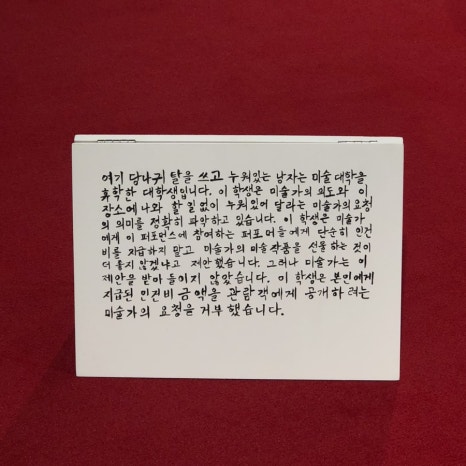 여기 당나귀 탈을 쓰고 누워있는 남자는 미술대학을
휴학한 대학생입니다. 이 학생은 미술가의 의도와 이
장소에 나와 할 일 없이 누워있어 달라는 미술가의 요청
의 의미를 정확히 파악하고 있습니다. 이 학생은 미술가
에게 이 퍼포먼스에 참여하는 퍼포머들에게 단순히 인건
비를 지급하지 말고 미술가의 미술작품을 선물하는 것이
더 옳지 않겠냐고 제안했습니다. 그러나 미술가는 이
제안을 받아들이지 않았습니다. 이 학생은 본인에게
지급된 인건비 금액을 관람객에게 공개하려는
미술가의 요청을 거부했습니다.